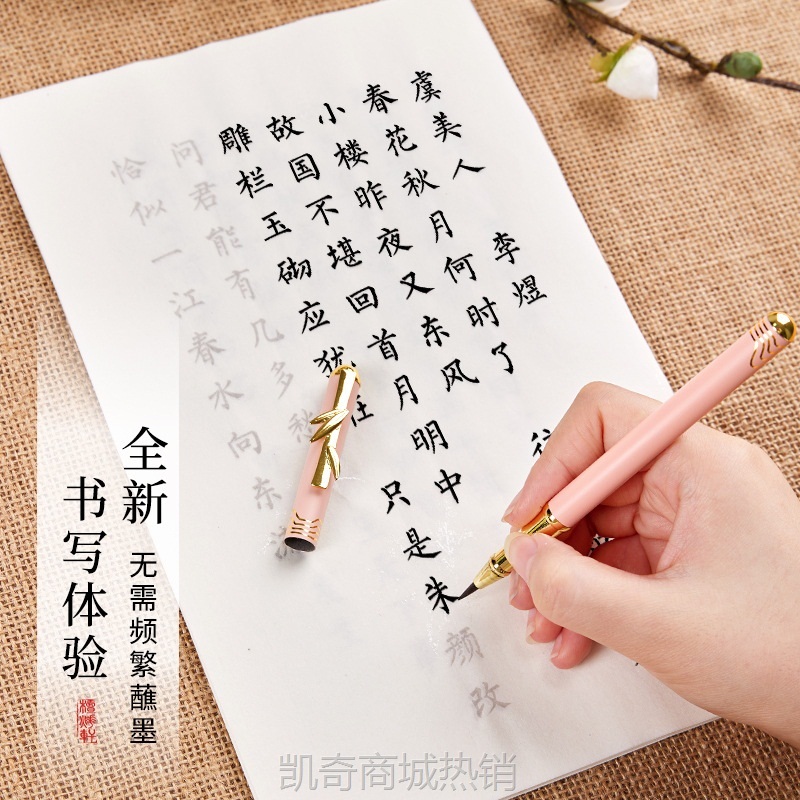 虞美人 李煜
春花秋月何时了 往
小楼昨夜又东风
故国不堪回首月明中
雕栏玉砌应犹在 只是朱颜改
问君能有几多愁
恰似一江春水向东流
全新
书写体验
无需频繁蘸墨
凯奇商城热销